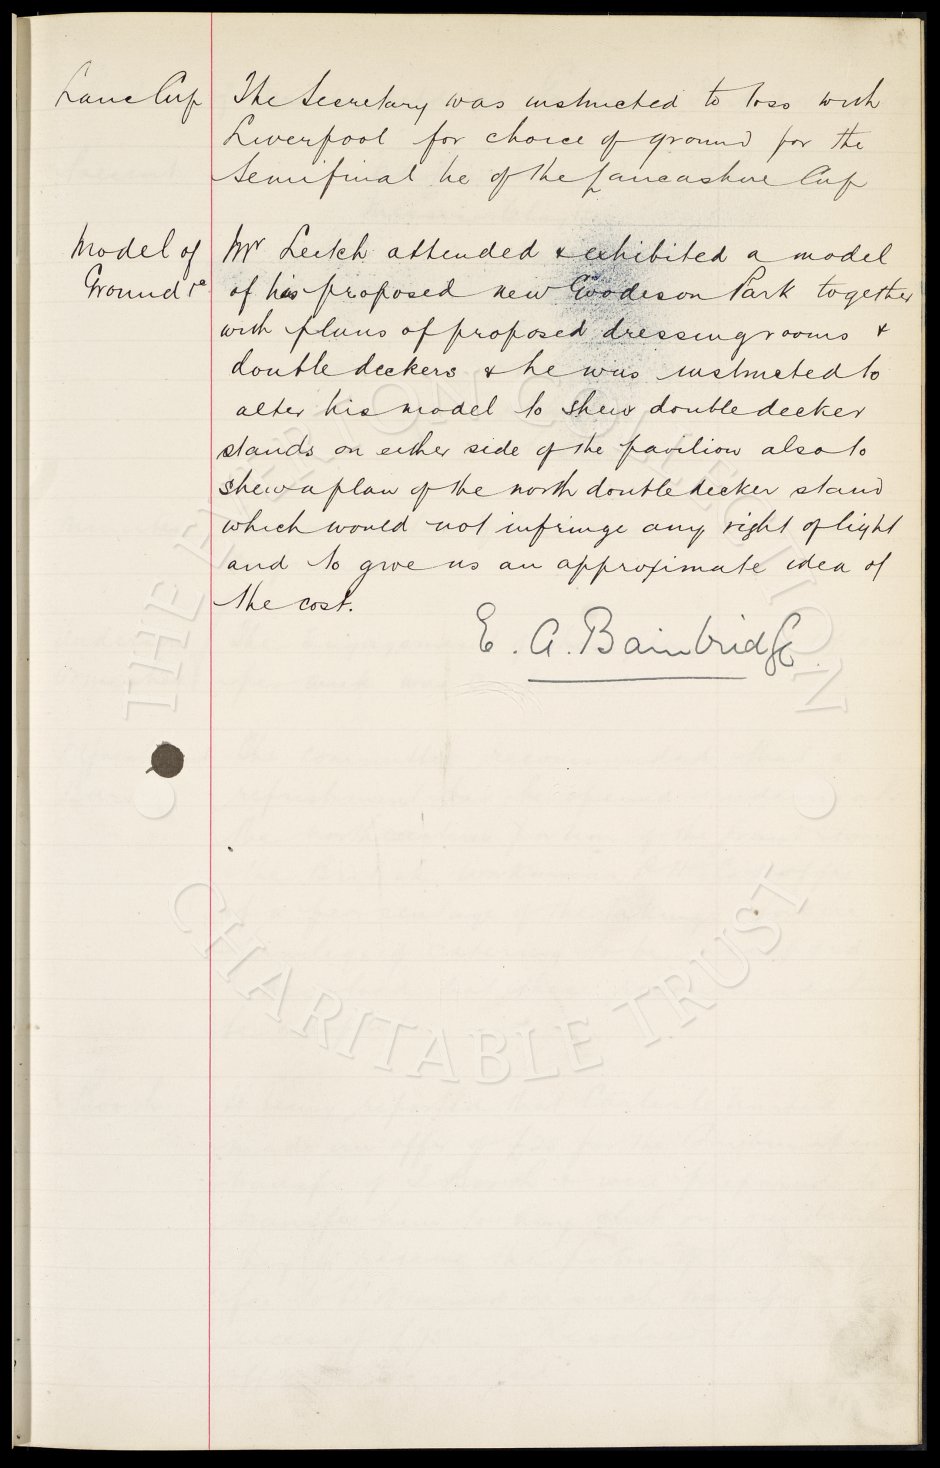 Lanc Cup
The Secretary was instructed to toss with
Liverpool for choice of ground for the
Semifinal tie of the Lancashire Cup
Model of
Ground &c
Mr Leitch attended & exhibited a model
of his proposed new Goodison Park together
with plans of proposed dressing rooms &
double deckers & he was instructed to
alter his model to shew double decker
stands on either side of the pavilion also to
shew a plan of the north double decker stand
which would not infringe any right of light
and to give us an approximate idea of
the cost.
E. A. Bainbridge
THE EVERTON COLLECTION
CHARITABLE TRUST